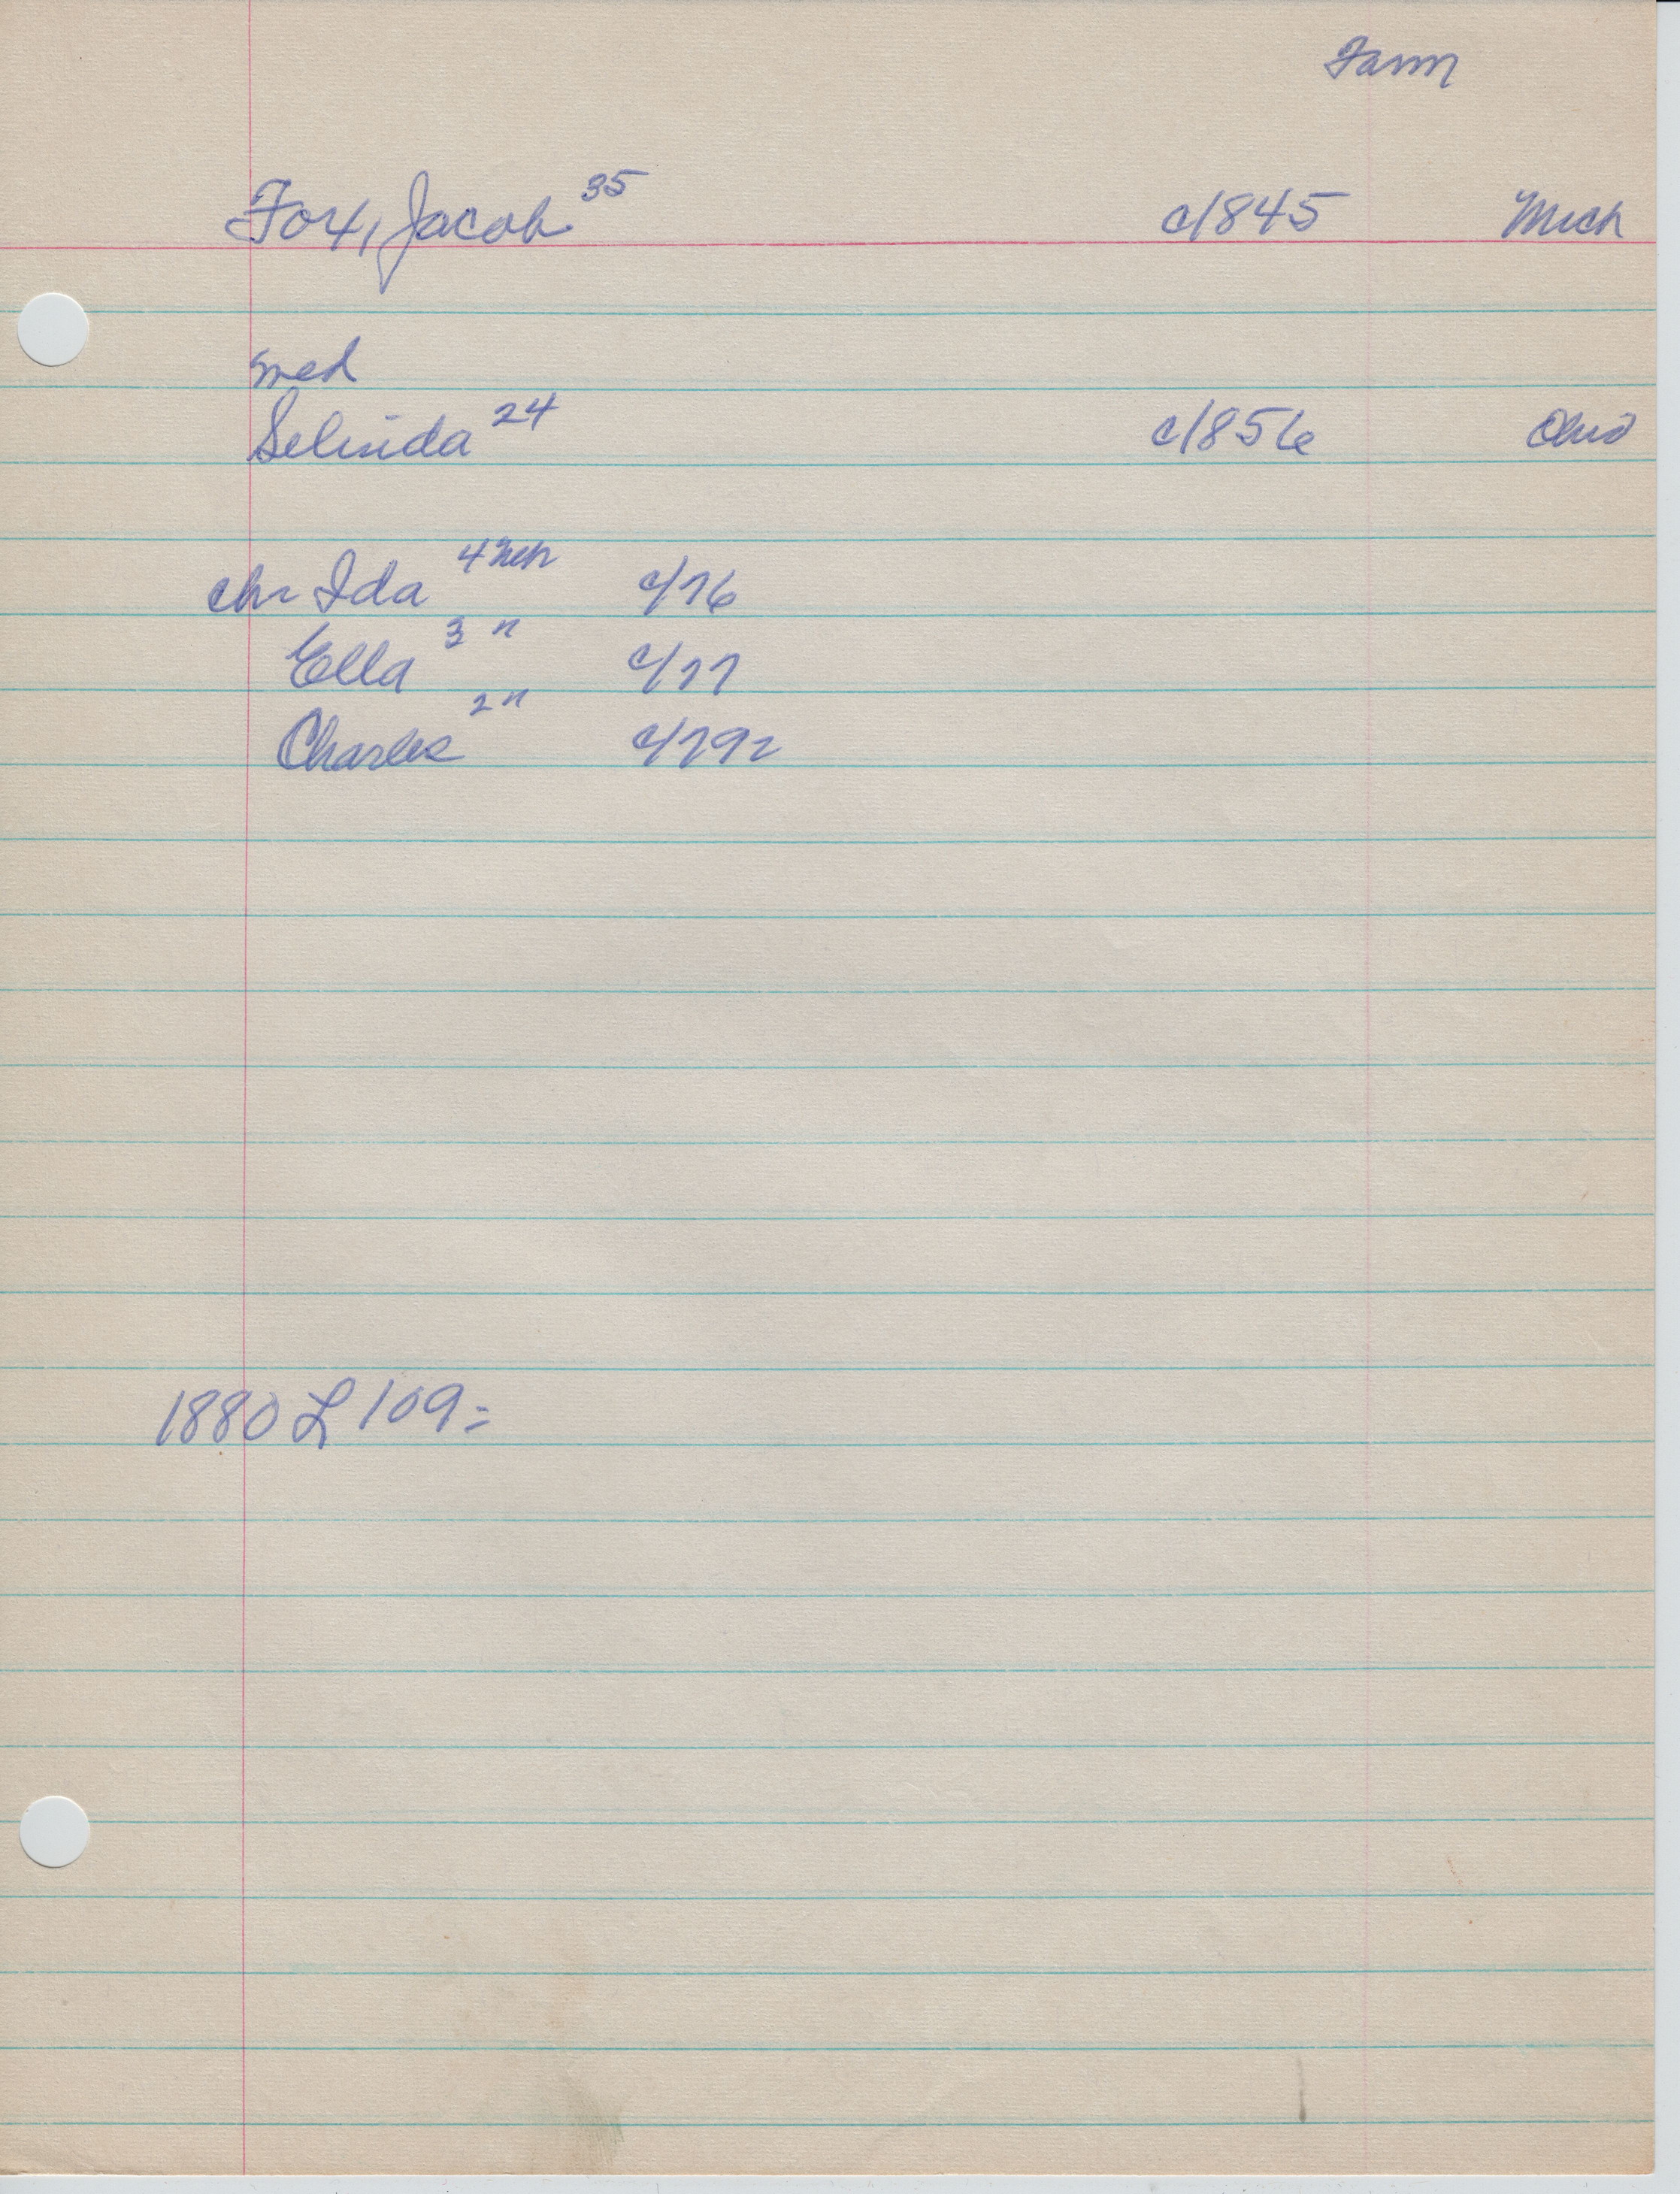 Farm
Fox, Jacob 35 c/845 Mich
med
Selinda 24 c/856 Ohio
chr Ida 4 Neb c/76
Ella 3 " c/77
Charles 2 " c/79
1880 L 109=